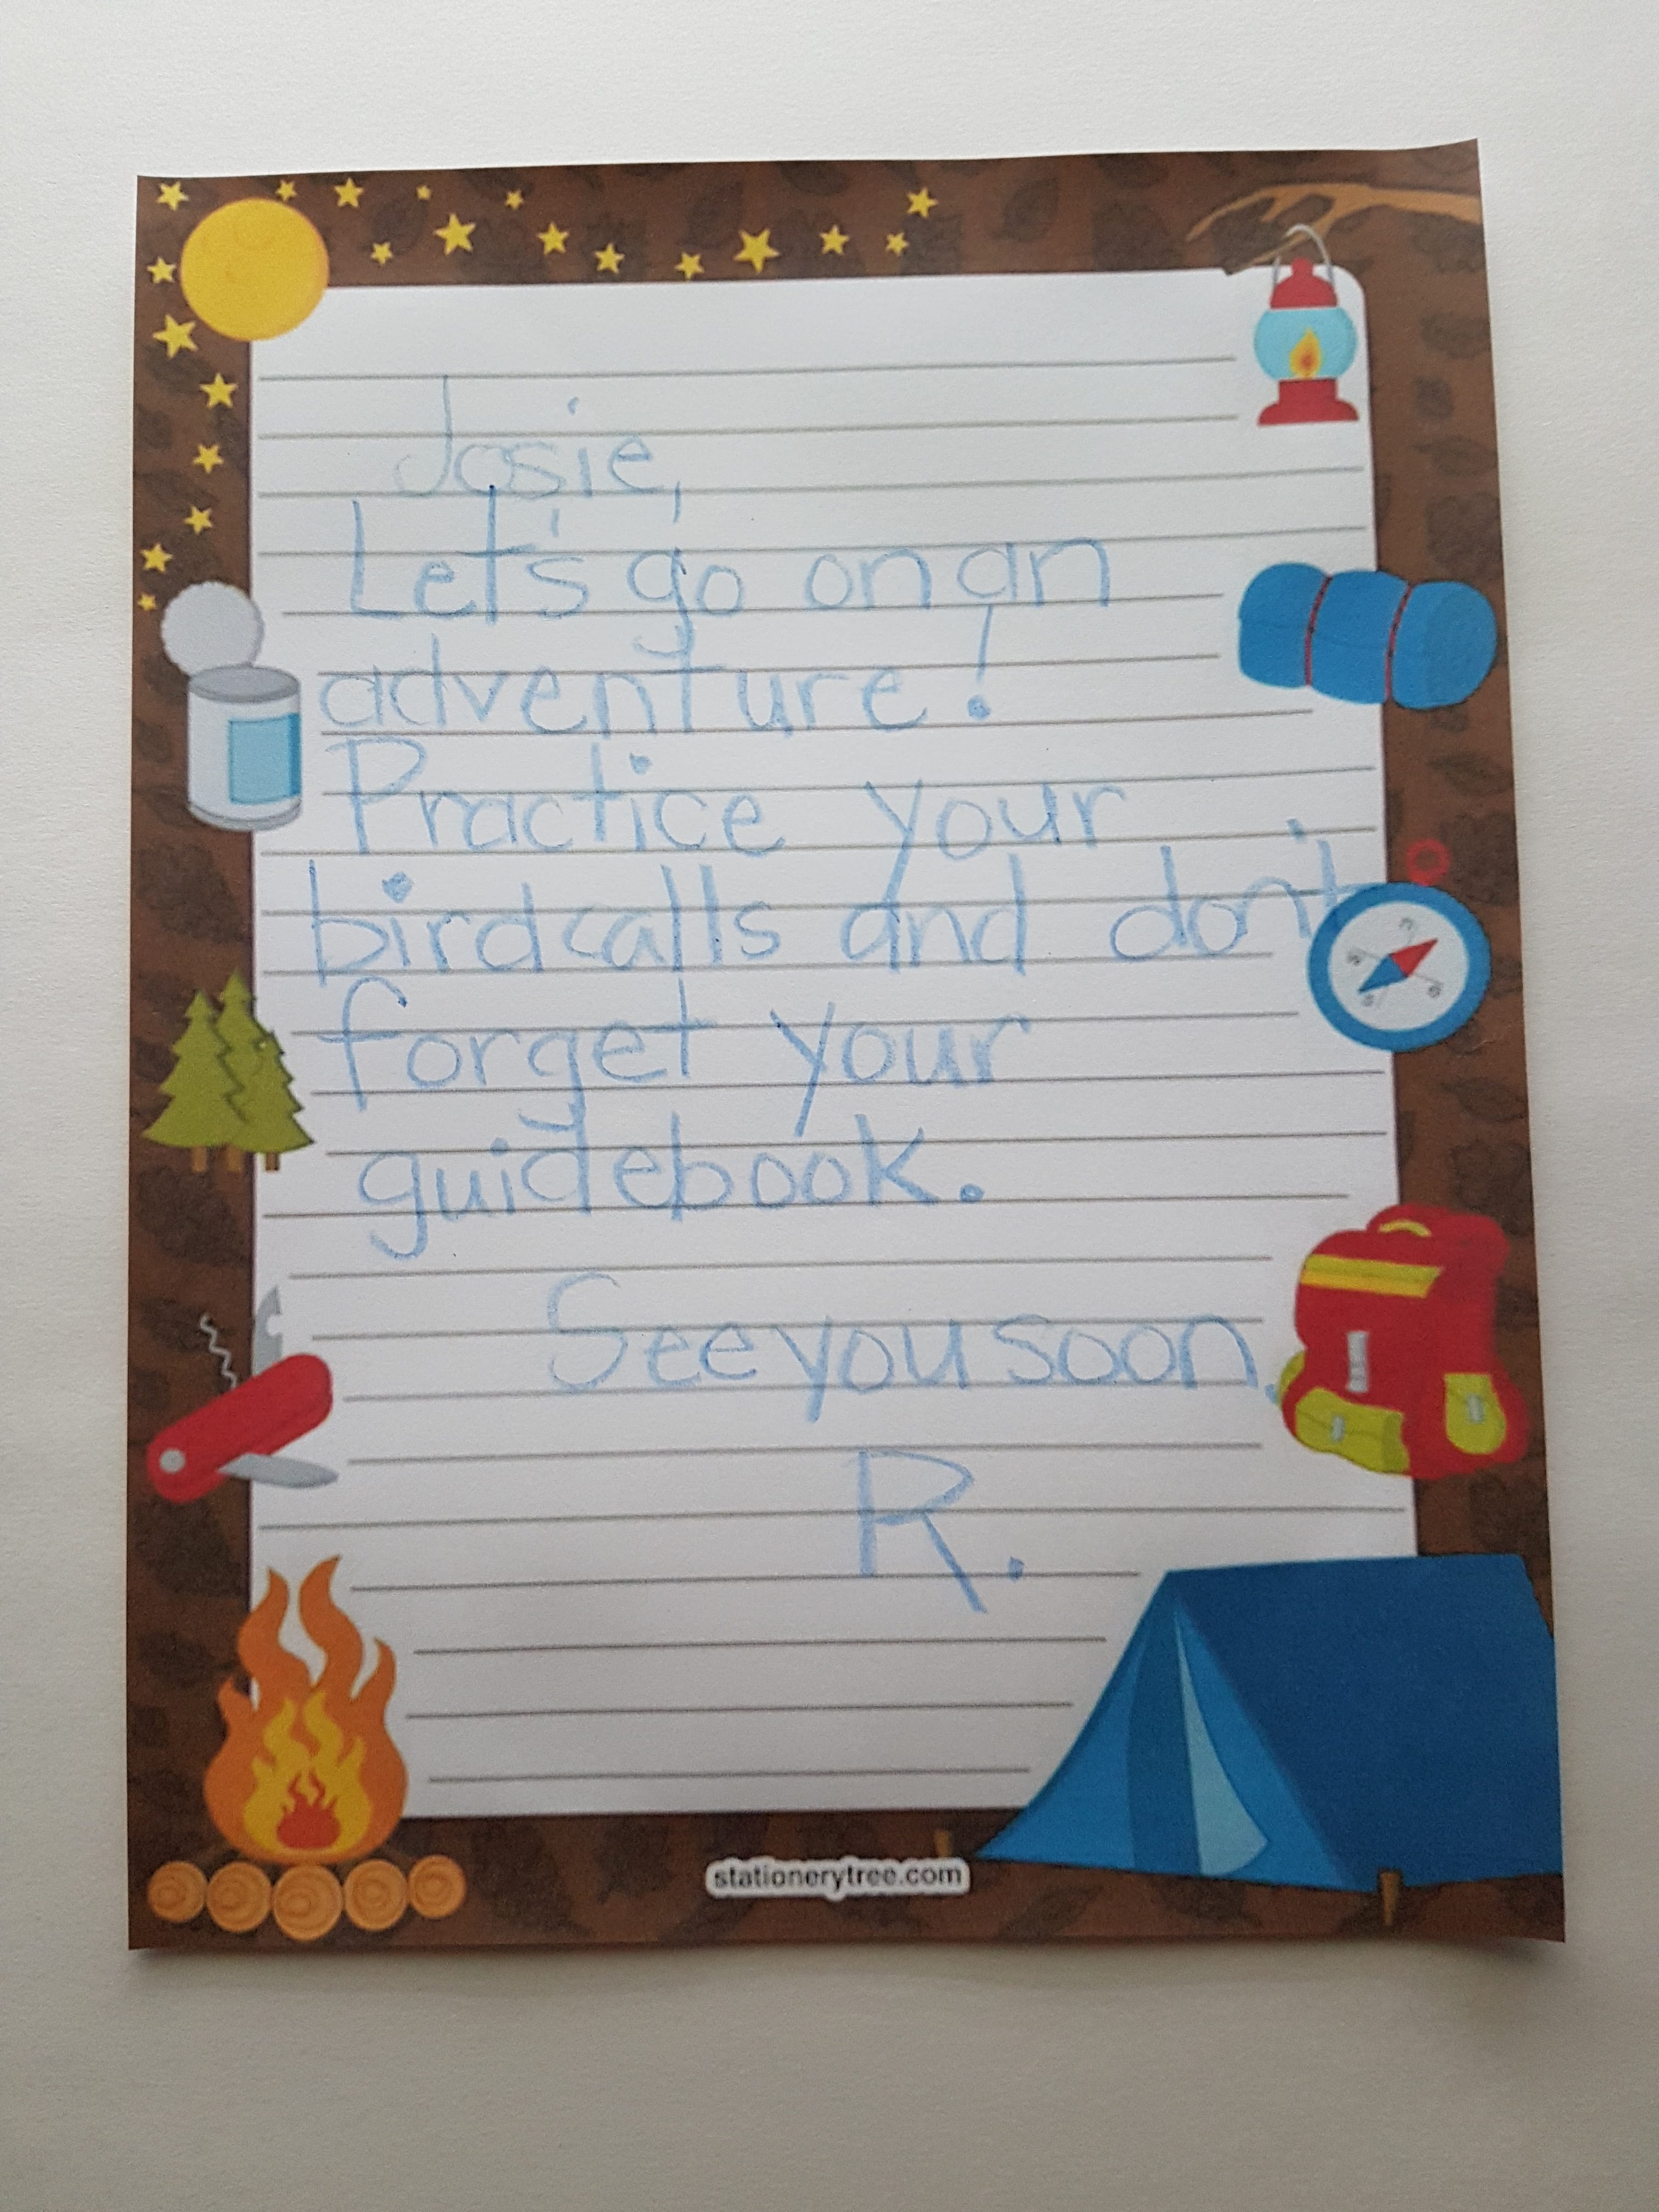 Josie,
Let's go on an
adventure!
Practice your
birdcalls and don't
forget your
guidebook.
See you soon,
R.
stationerytree.com